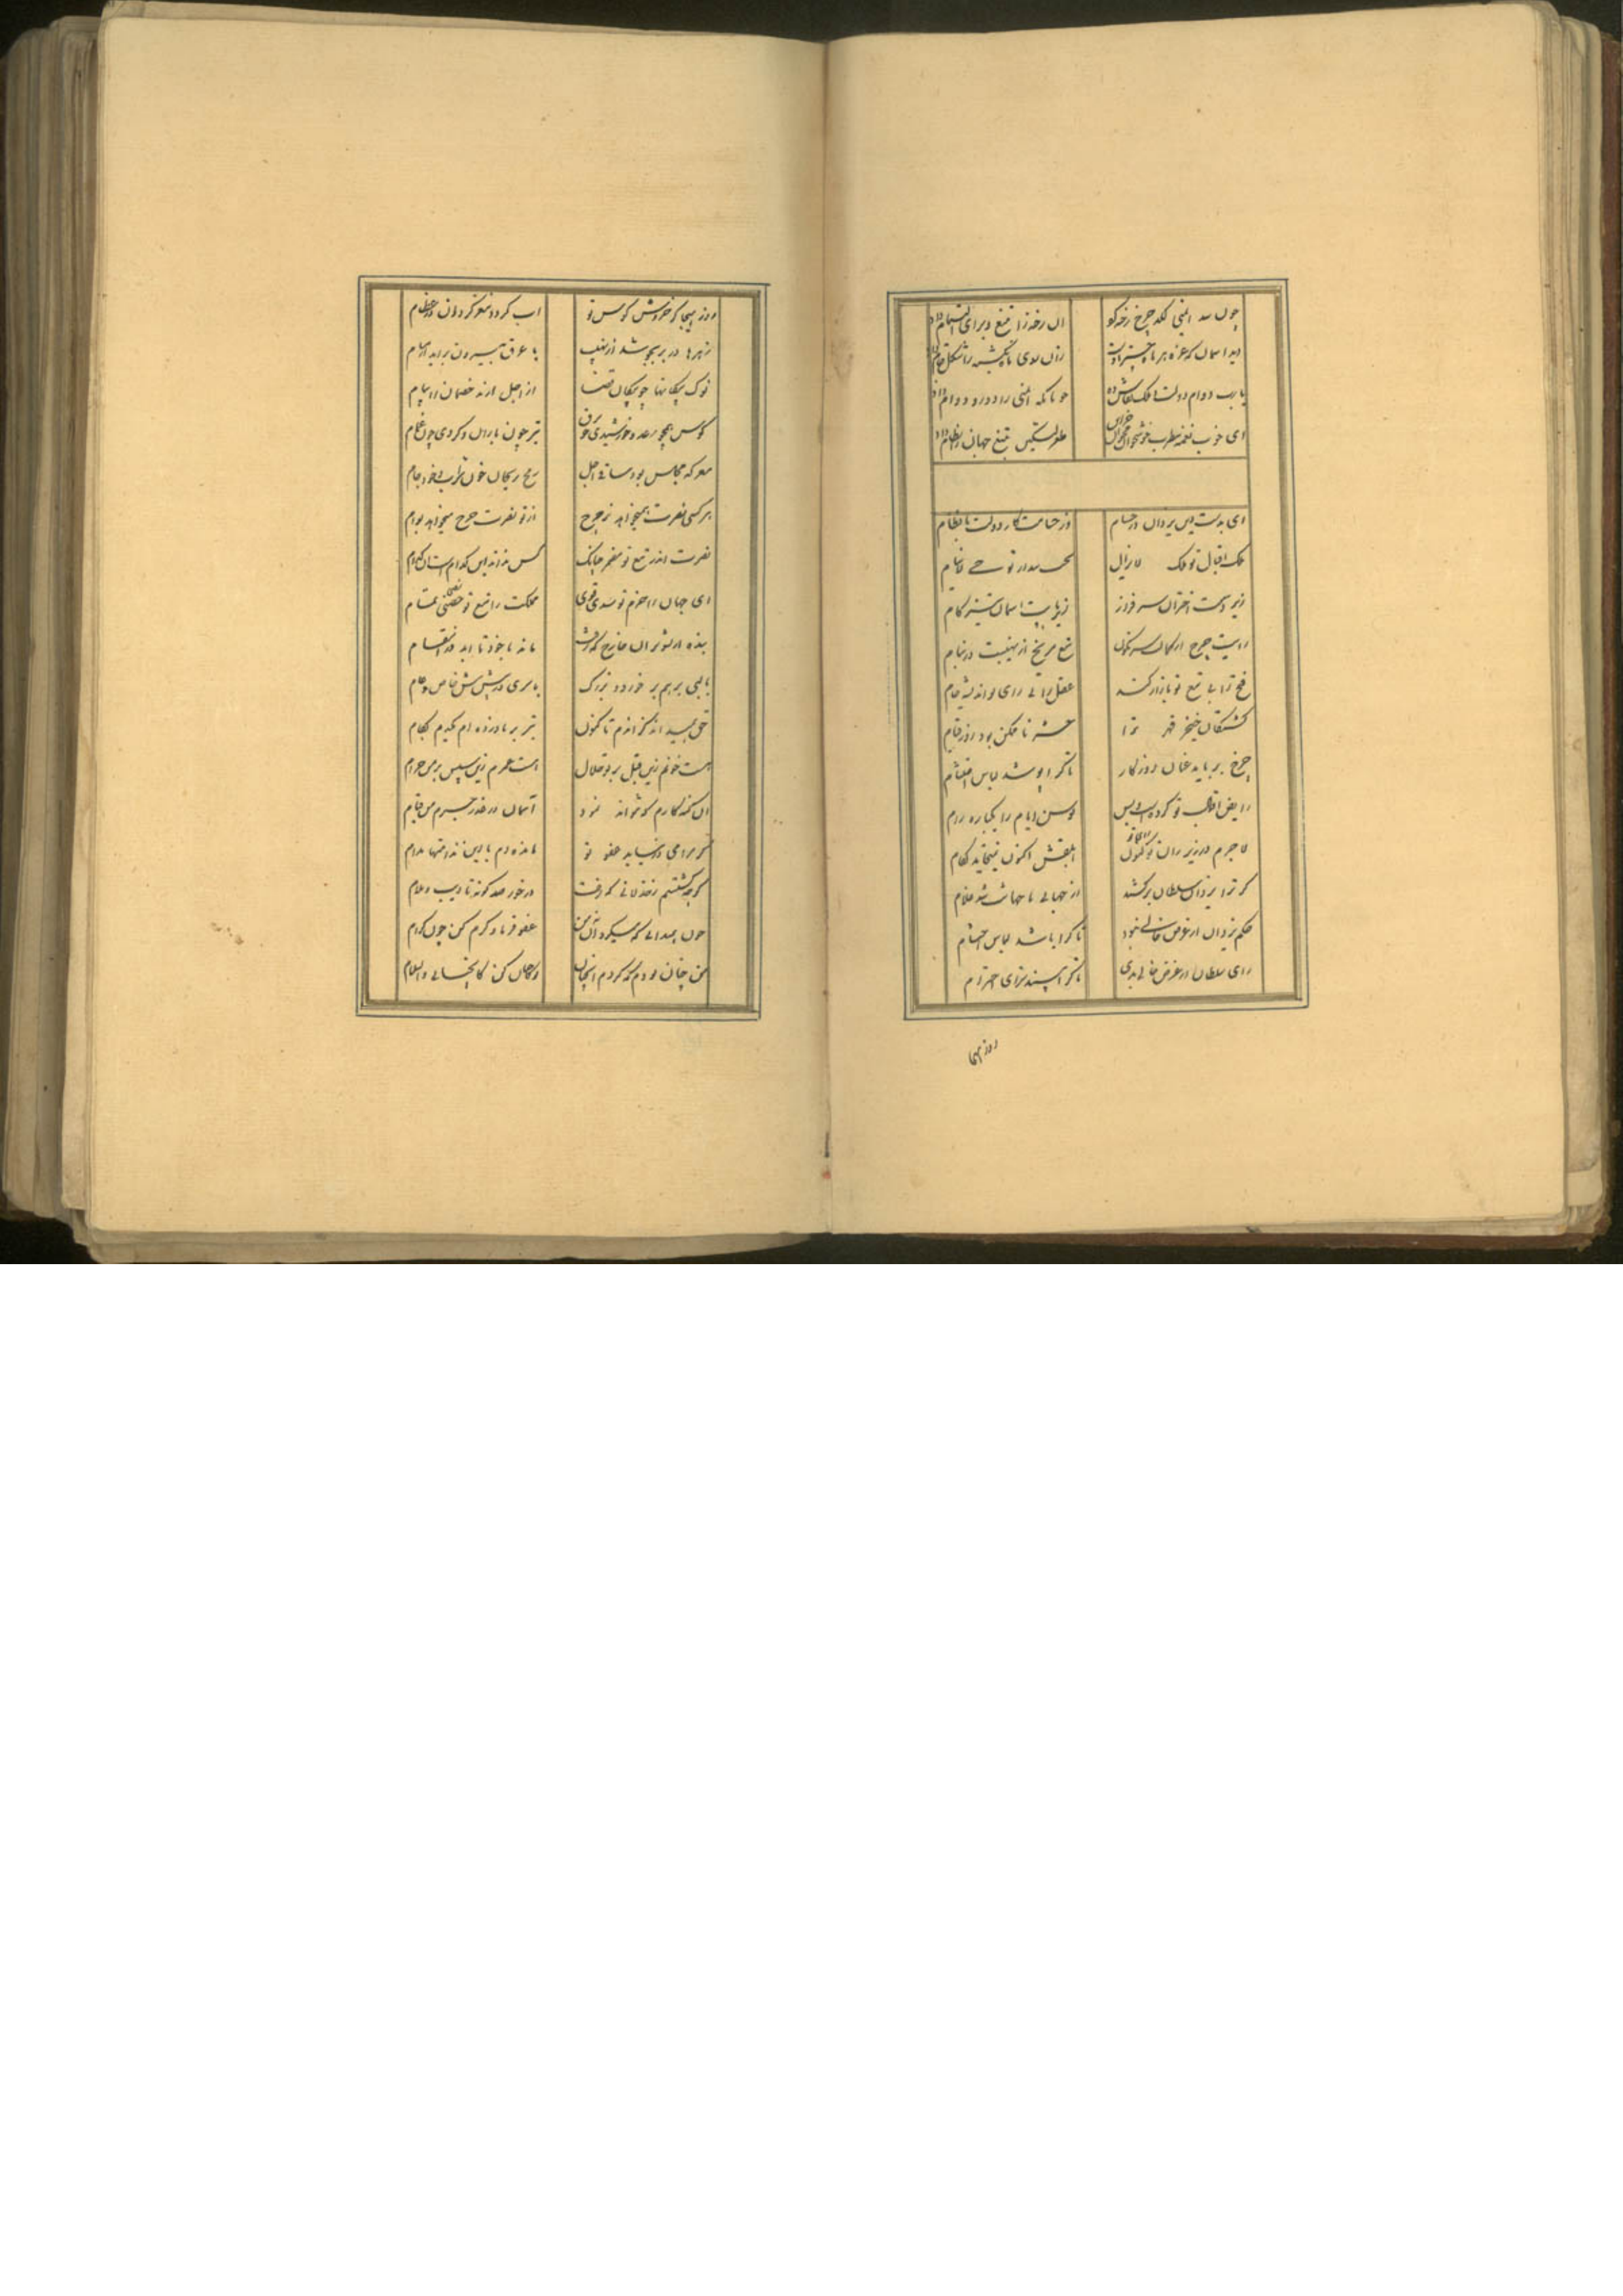 چون سد ایمنی لکد چرخ رخنه کو ان رخنه را تیغ و برای التیام داد
دید اسمان که غره بر ماه چتر اوست زان روی ماه را شکل داد
یارب دوام دولت و ملک بقاش ده چونانکه ایمنی را دور و دوام داد
ای خوب نغمه مطرب خوشخوان تیغ جهان را نظام داد
ای بدست این یزدان در حسام وز حسامت کار دولت با نظام
ملک اقبال تو ملک لایزال بخت بیدار تو حی لاینام
زیر دست اختران سرفراز زیر پایت اسمان تیز کام
رایت چرخ از کمان سرنگون تیغ مریخ از نهیبت در نیام
فتح را بی تیغ تو بازار کند عقل را بی رای تو اندیشه خام
کشتگان خنجر قهر ترا حشر ناممکن بود روز قیام
چرخ برباید عنان روزگار تا کرا پوشد لباس اعتشام
رایض اقبال تو کردست و بس توسن ایام را یکباره رام
لاجرم در زیر ران اکنون ابلقش اکنون نیخاید لکام
کر ترا یزدان و سلطان برکشند از جهانی تا جهانت شد غلام
حکم یزدان از غرض خالی بود تا کرا باشد لباس احتشام
رای سلطان از غرض خالی بدی تا کرا بیند سزای احترام
روز هیجا
روز هیجا کز خروش کوس تو اب کردد مغز کردون در عظام
زهرها در بر بجوشد از نهیب با عرق بیرون براید از مسام
نوک پیکانها چو پیکان قضا از اجل ارند خصمان را پیام
کوس همچو رعد و خورشیدی چو برق تیر چون باران و کردی چون غمام
معرکه مجلس بود ساقی اجل رمح ریحان خون شراب خود جام
هر کسی نصرت همیخواهد ز چرخ از تو نصرت چرخ میخواهد بوام
نصرت اندر تیغ تو مضمر چنانک کس نداند این کدام است ان کدام
ای جهان را حزم تو سدی قوی مملکت را تیغ تو حصنی تمام
بنده از شوران خارج که رفت ماند با خود تا ابد در انتقام
با لبی برهم بر خورد و بزرک با سری در پیش پیش خاص و عام
حق همیداند کز اندم تا کنون تیر بر نازده ام یکدم بکام
هست خونم زین قبل بر تو حلال است عمرم زین سپس بر من حرام
ان کنه کارم که نتواند نمود آسمان در خورد جرم من قیام
کر مرا می درنیابد عفو تو مانده ام با این ندامتها مدام
کرچه کشتم زخذلانی که رفت در خور صد کونه تادیب و ملام
چون همیدانی که میکرد آن نه من عفو فرما و کرم کن چون کرام
من چنان بودم که کردم انچنان وه چنان کن کانچنانی والسلام